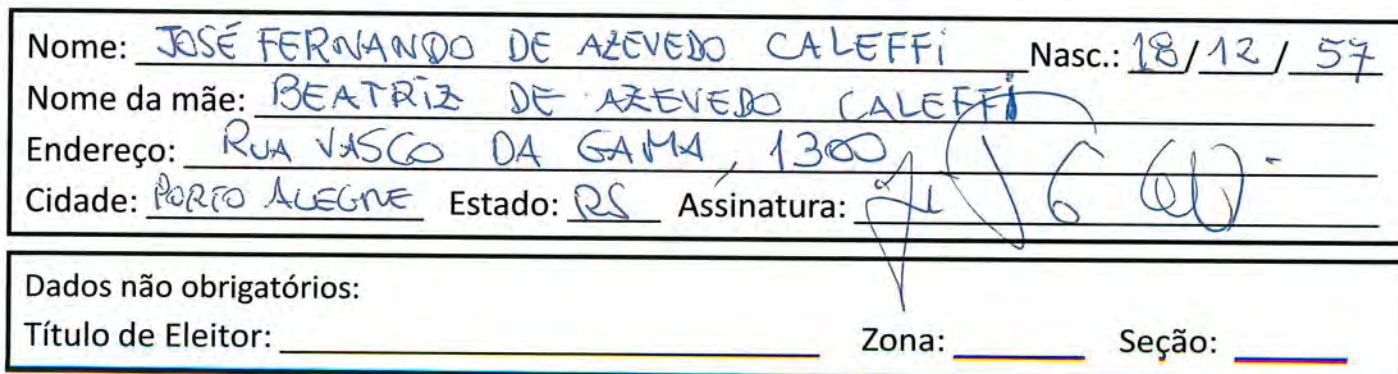 Nome: JOSÉ FERNANDO DE AZEVEDO CALEFFI Nasc.: 18/12/57
Nome da mãe: BEATRIZ DE AZEVEDO CALEFFI
Endereço: RUA VASCO DA GAMA, 1300
Cidade: PORTO ALEGRE Estado: RS Assinatura:
Dados não obrigatórios:
Título de Eleitor: Zona: Seção: